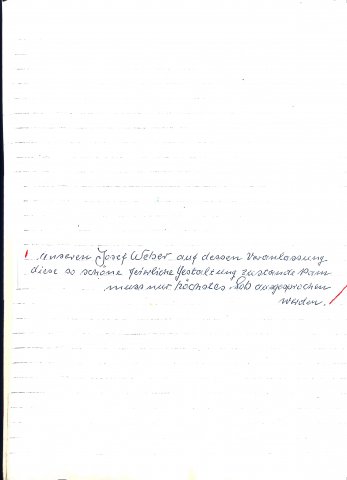 Unseren Josef Weber auf dessen Veranlassung
diese so schöne feierliche Gestaltung zustande kam
muss nur höchstes Lob ausgesprochen
werden.